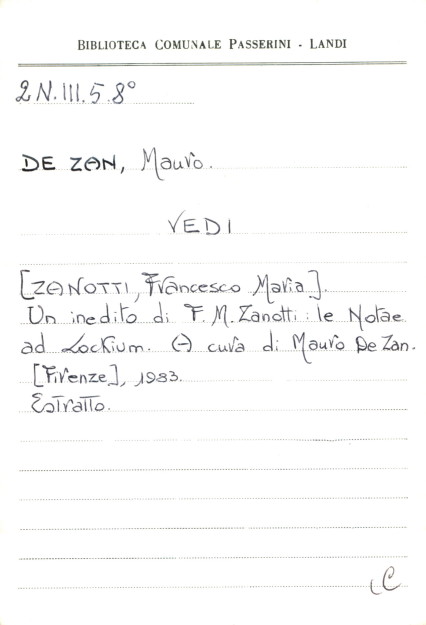 BIBLIOTECA COMUNALE PASSERINI - LANDI
2 N.III.5.8°
DE ZAN, Mauro.
VEDI
[ZANOTTI, Francesco Maria].
Un inedito di F. M. Zanotti: le Notae
ad Lockium. A cura di Mauro De Zan.
[Firenze], 1983.
Estratto.
C